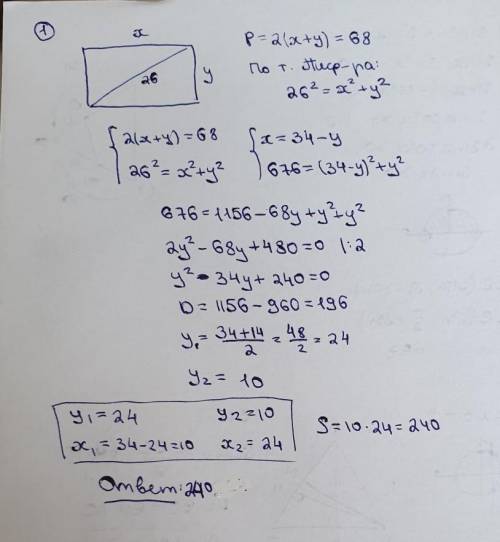 1
x
26
y
P = 2(x+y) = 68
По т. Пиф-ра:
26² = x² + y²
{ 2(x+y) = 68
26² = x² + y²
{ x = 34 - y
676 = (34-y)² + y²
676 = 1156 - 68y + y² + y²
2y² - 68y + 480 = 0 |:2
y² - 34y + 240 = 0
D = 1156 - 960 = 196
y₁ = (34+14)/2 = 48/2 = 24
y₂ = 10
y₁ = 24 y₂ = 10
x₁ = 34-24 = 10 x₂ = 24
S = 10·24 = 240
Ответ: 240